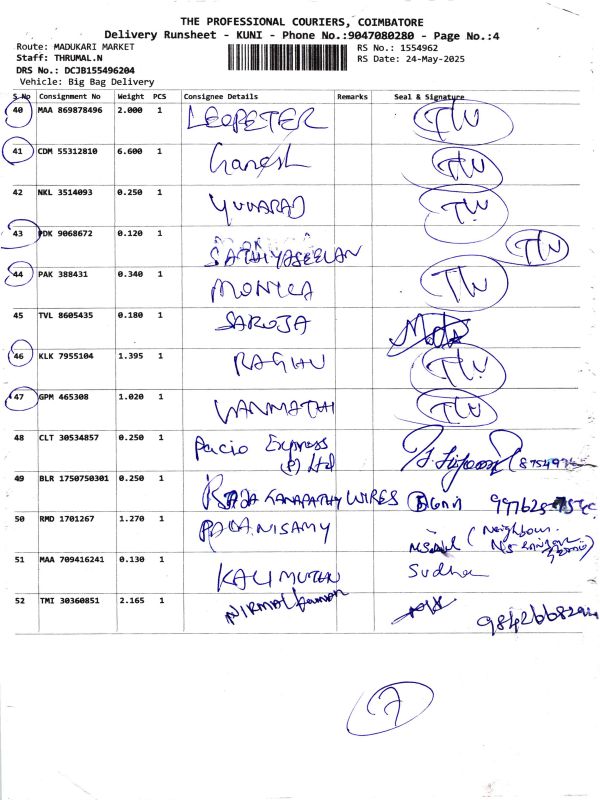 THE PROFESSIONAL COURIERS, COIMBATORE
Delivery Runsheet - KUNI - Phone No.:9047080280 - Page No.:4
Route: MADUKARI MARKET RS No.: 1554962
Staff: THRUMAL.N RS Date: 24-May-2025
DRS No.: DCJB155496204
Vehicle: Big Bag Delivery
S.No Consignment No Weight PCS Consignee Details Remarks Seal & Signature
40 MAA 869878496 2.000 1 LEOPETER
41 CDM 55312810 6.600 1 Ganesh
42 NKL 3514093 0.250 1 YUVARAJ
43 PDK 9068672 0.120 1 SATHIYASEELAN
44 PAK 388431 0.340 1 MONICA
45 TVL 8605435 0.180 1 SAROJA
46 KLK 7955104 1.395 1 RAGHU
47 GPM 465308 1.020 1 VANMATHI
48 CLT 30534857 0.250 1 Pacio Express
(P) Ltd
49 BLR 1750750301 0.250 1 RAJA GANAPATHY WIRES
50 RMD 1701267 1.270 1 PALANISAMY (Neighbour
51 MAA 709416241 0.130 1 KALIMUTHU Sudha
52 TMI 30360851 2.165 1 NIRMAL kumar
7